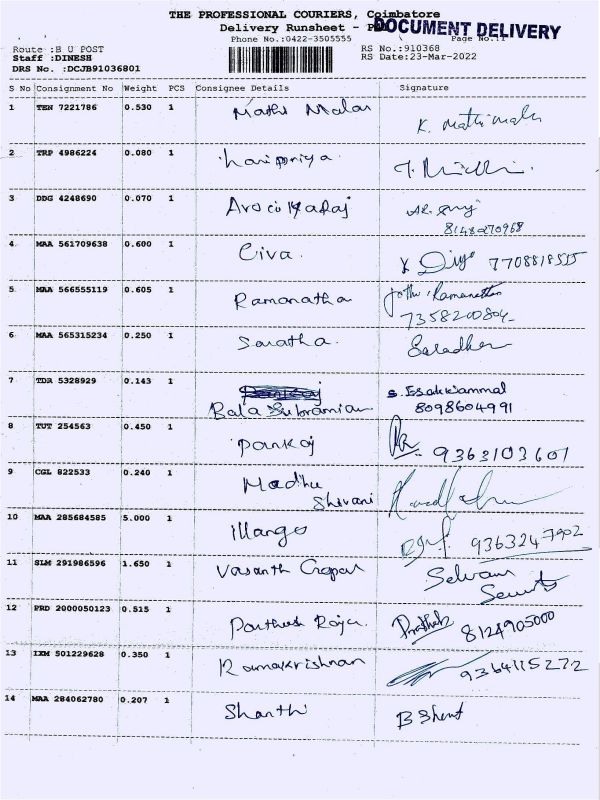 THE PROFESSIONAL COURIERS, Coimbatore
DOCUMENT DELIVERY
Delivery Runsheet - 
Phone No.:0422-3505555 Page No.11
Route :B U POST RS No.:910368
Staff :DINESH RS Date:23-Mar-2022
DRS No. :DCJB91036801
S No Consignment No Weight PCS Consignee Details Signature
1 TEN 7221786 0.530 1 Mathi Malar K. Mathimalar
2 TRP 4986224 0.080 1 haripriya.
3 DDG 4248690 0.070 1 Arockiyaraj
8148270968
4 MAA 561709638 0.600 1 Civa. 7708818515
5 MAA 566555119 0.605 1 Ramanatha Jothi Ramanathan
7358200804
6 MAA 565315234 0.250 1 Saratha. Saradha
7 TDR 5328929 0.143 1 Pankaj S. Esakkiammal
Bala Subramian 8098604991
8 TUT 254563 0.450 1 Pankaj 9363103601
9 CGL 822533 0.240 1 Madhu
Shivani
10 MAA 285684585 5.000 1 illango 9363247902
11 SLM 291986596 1.650 1 Vasanth Gopal Selvam
Security
12 PRD 2000050123 0.515 1 Parthush Raja. 8124905000
13 IXM 501229628 0.350 1 Ramakrishnan 9364115272
14 MAA 284062780 0.207 1 Shanthi B Shent